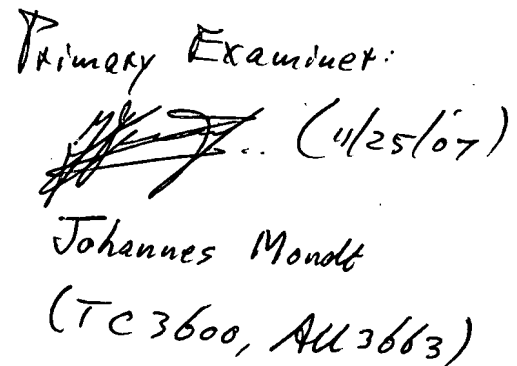 Primary Examiner:
(11/25/07)
Johannes Mondt
(TC 3600, AU 3663)